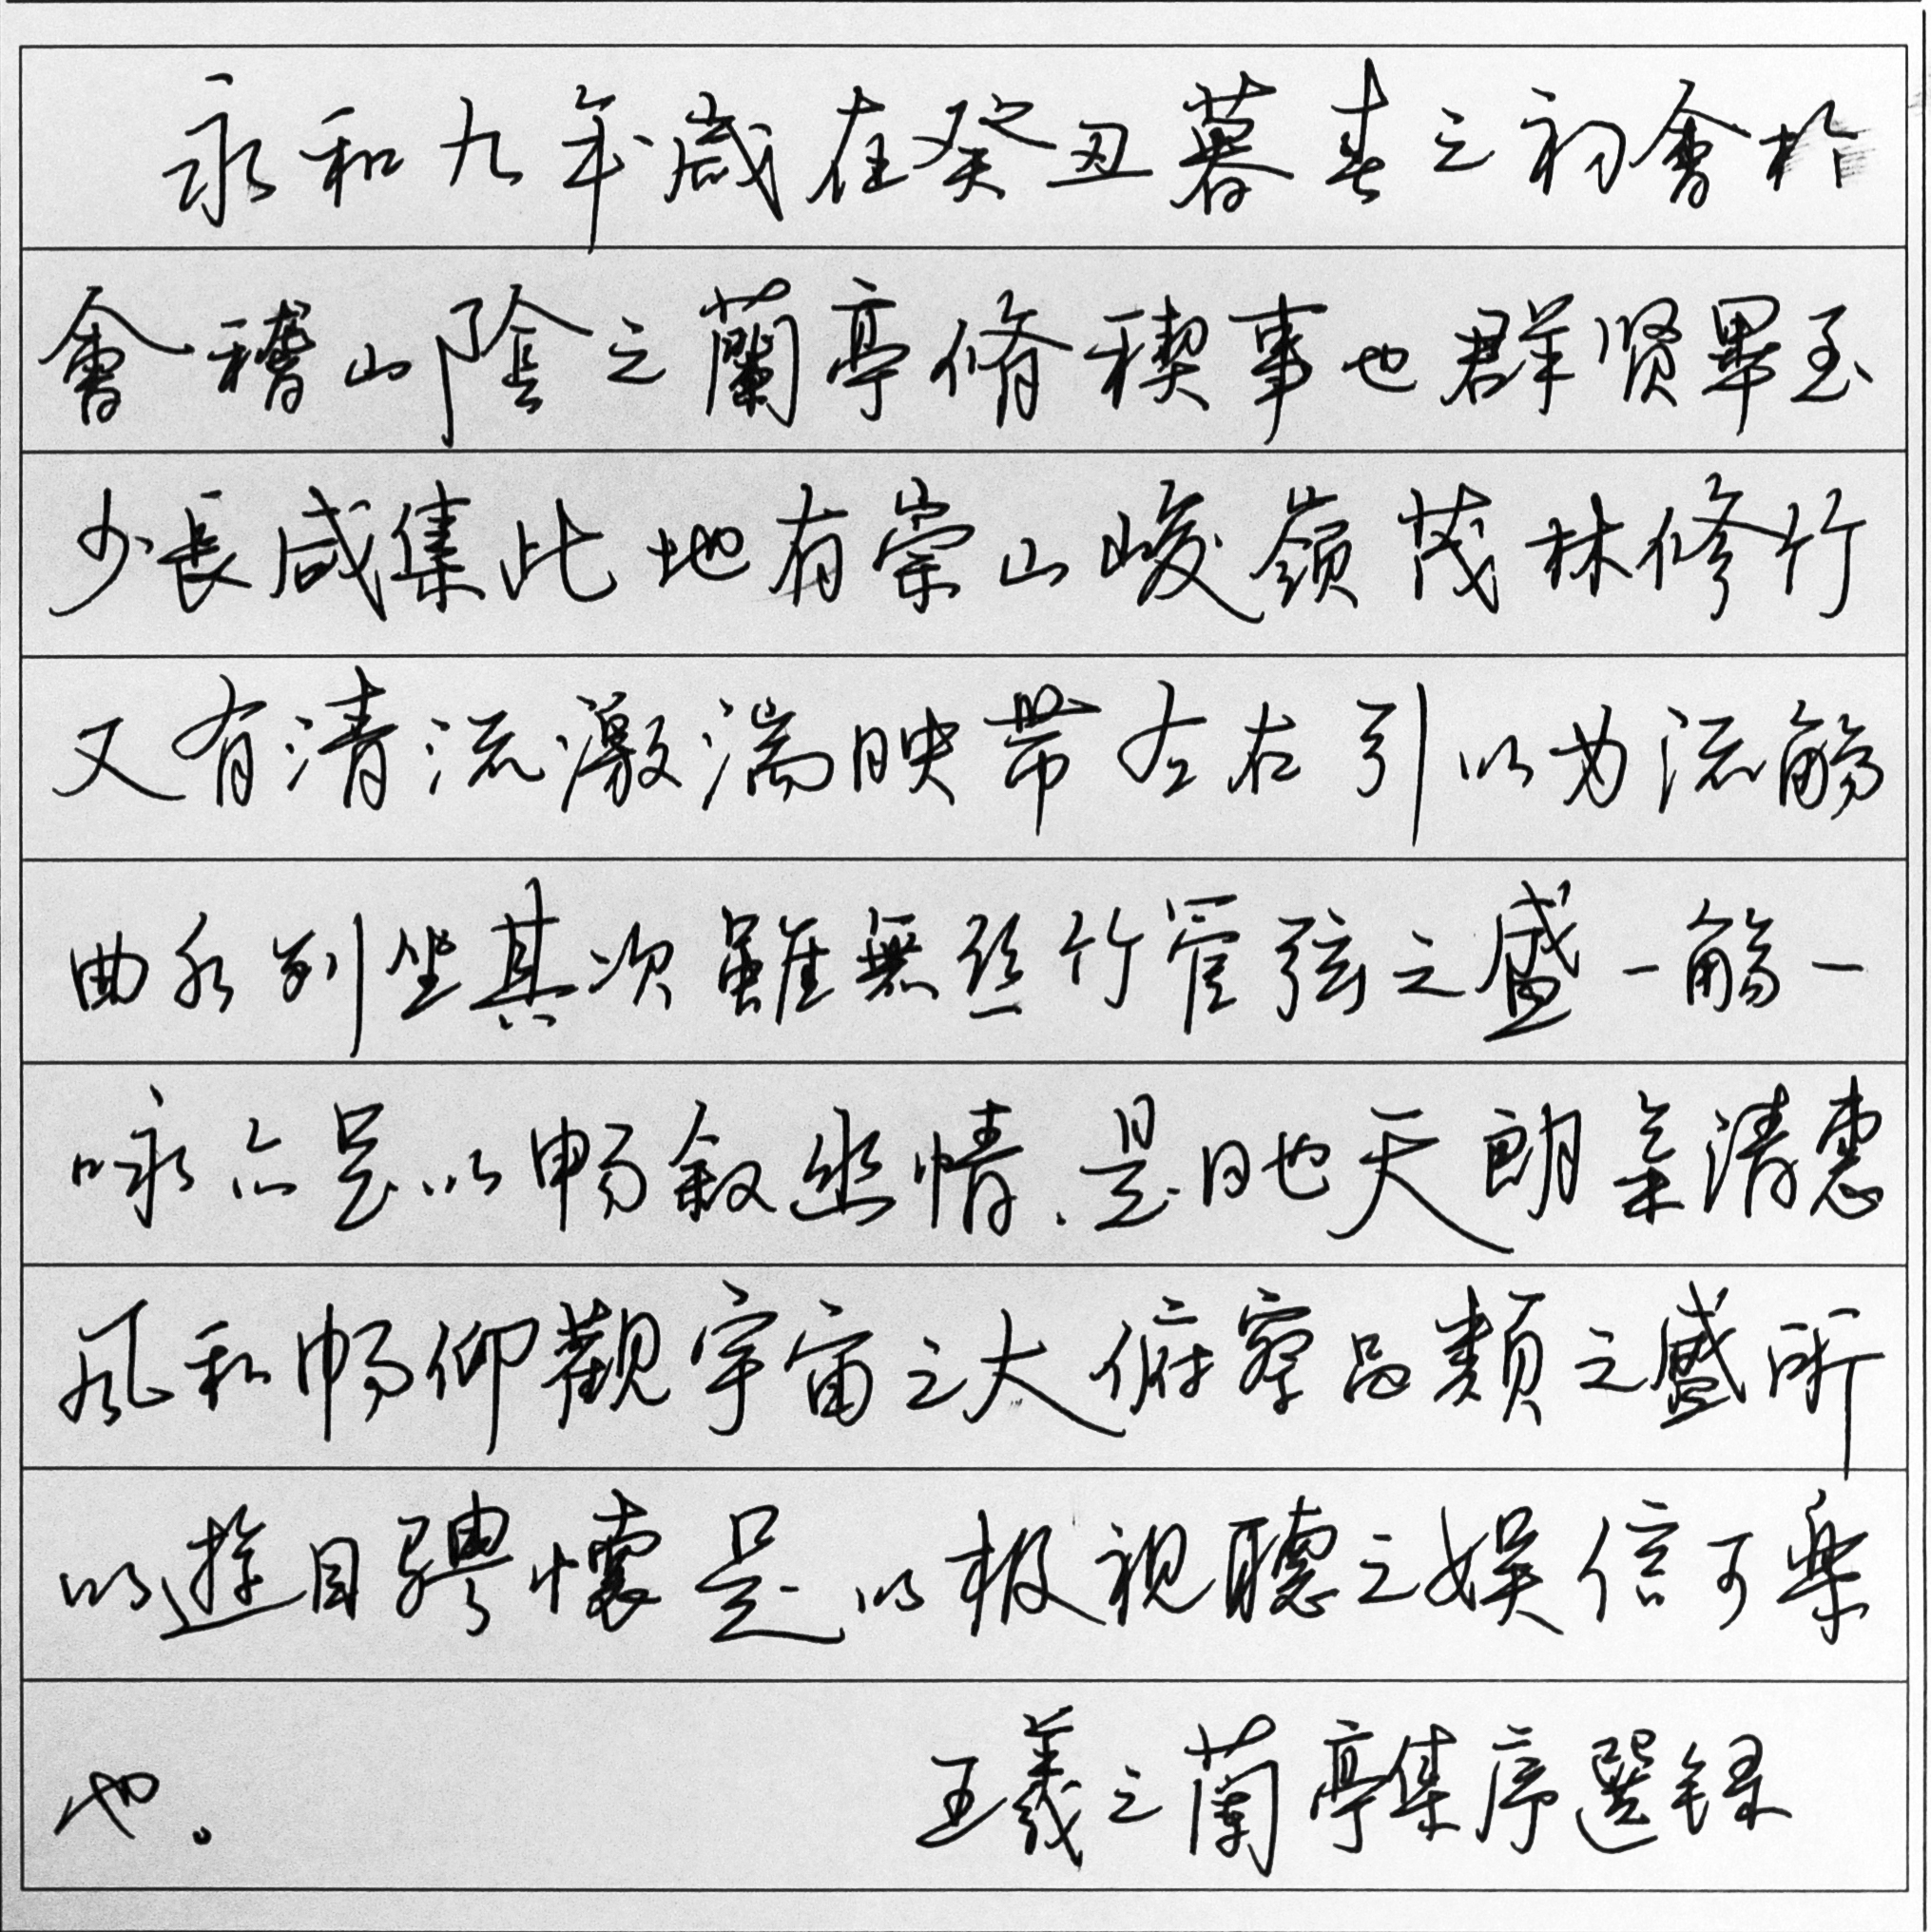 永和九年歲在癸丑暮春之初會於
會稽山陰之蘭亭脩稧事也群贤畢至
少長咸集此地有崇山峻嶺茂林修竹
又有清流激湍映帶左右引以为流觞
曲水列坐其次雖無丝竹管弦之盛一觞一
咏亦足以畅叙幽情.是日也天朗氣清惠
风和畅仰觀宇宙之大俯察品類之盛所
以遊目骋懷足以极视聽之娱信可樂
也。
王羲之蘭亭集序選録